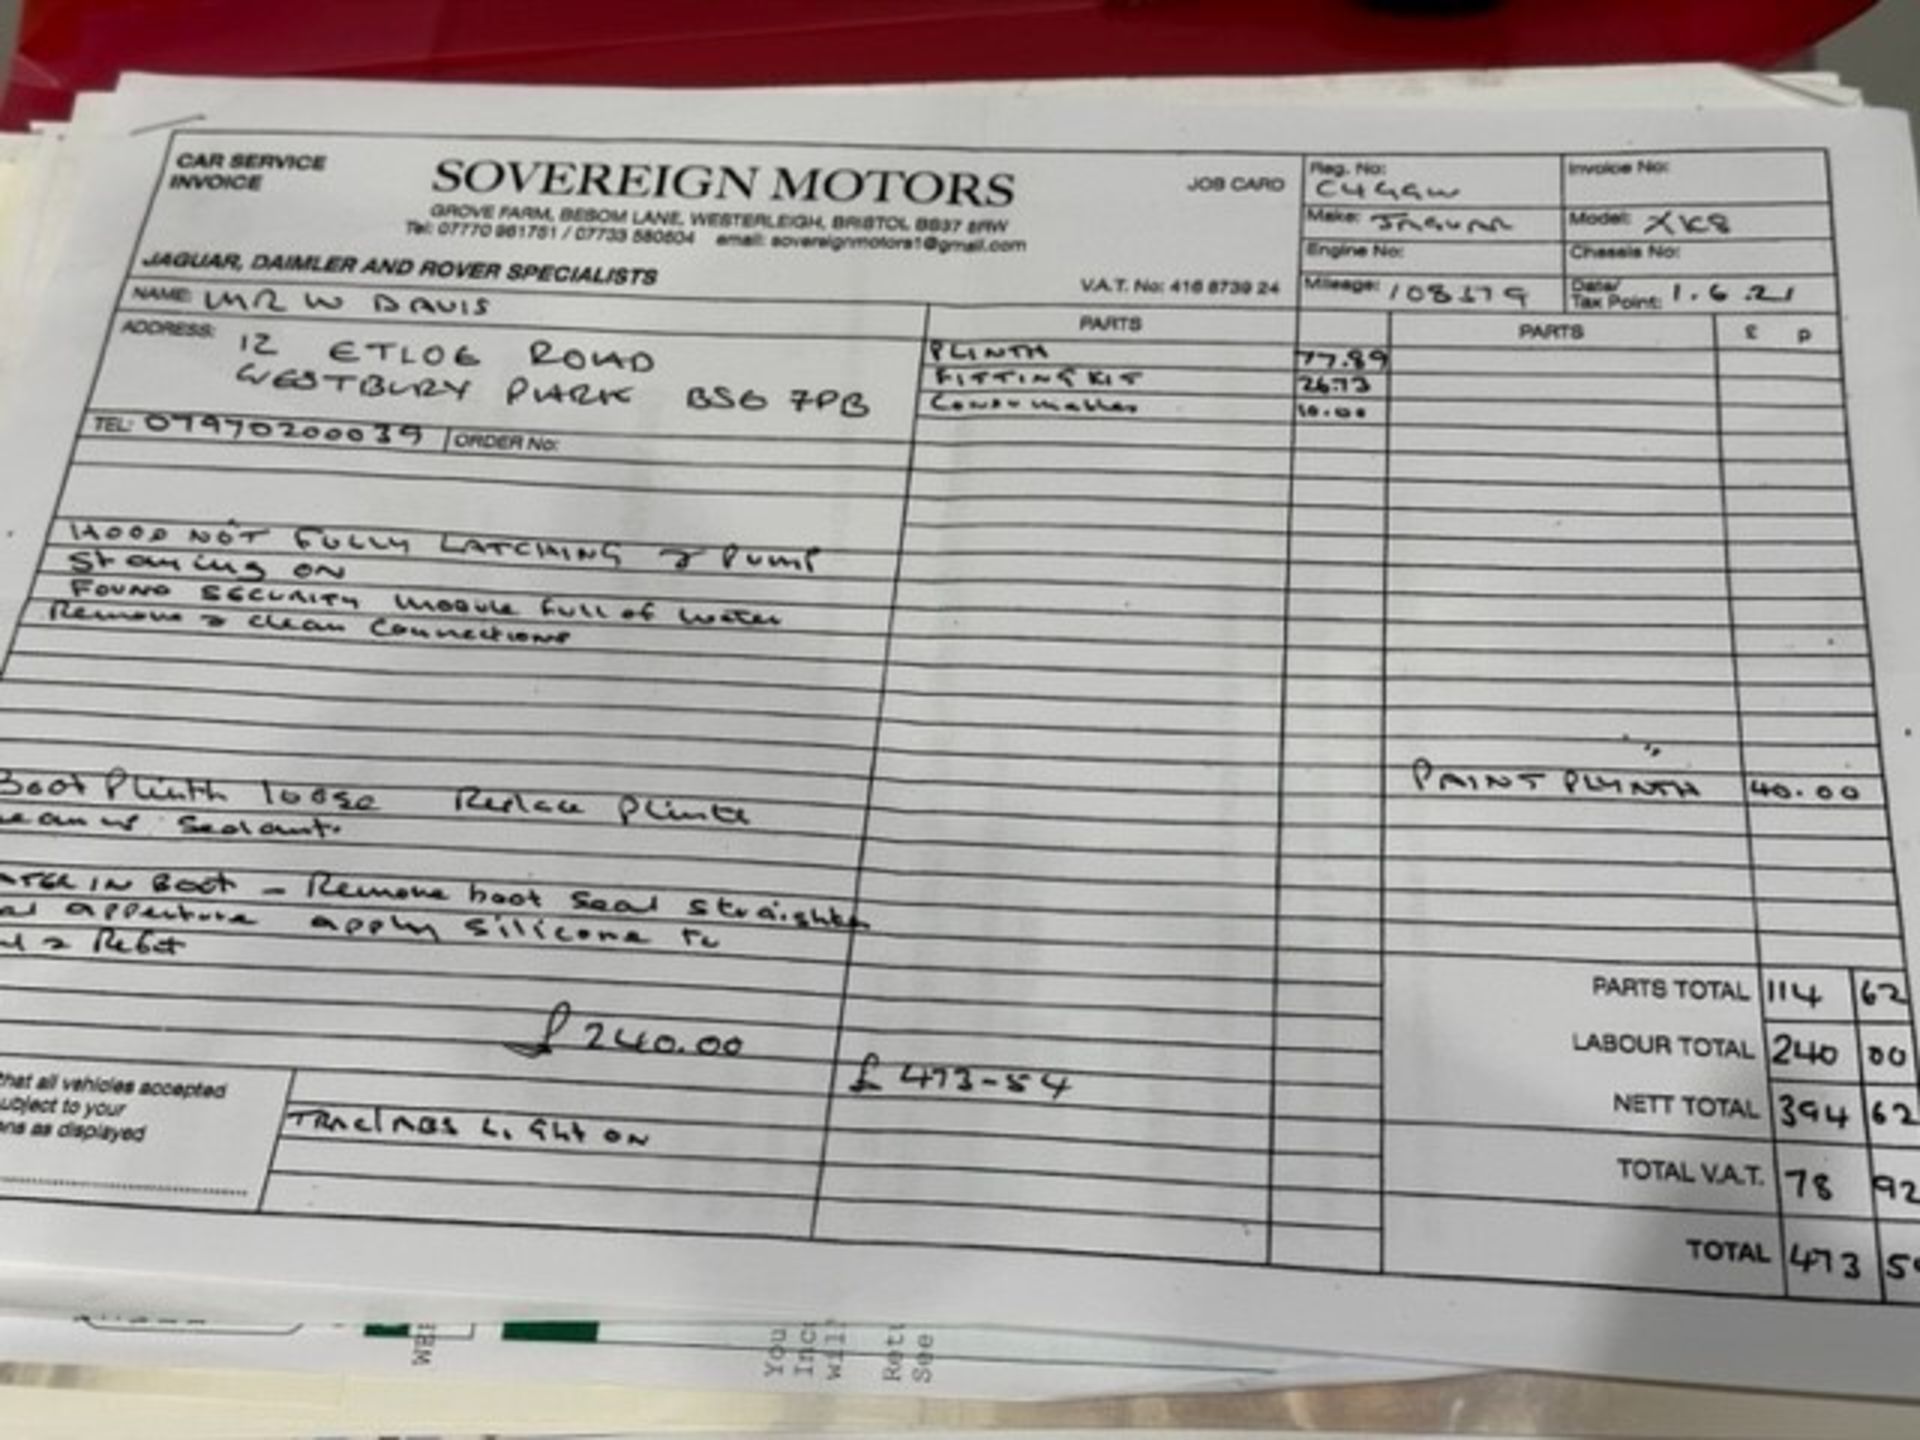 CAR SERVICE
INVOICE
SOVEREIGN MOTORS
GROVE FARM, BESOM LANE, WESTERLEIGH, BRISTOL BS37 8RW
Tel: 07770 961751 / 07733 580504 email: sovereignmotors1@gmail.com
JAGUAR, DAIMLER AND ROVER SPECIALISTS
JOB CARD
V.A.T. No: 416 8739 24
Reg. No:
Invoice No:
Make: JAGUAR
Model: XK8
Engine No:
Chassis No:
Mileage: 108379
Date/
Tax Point: 1.6.21
NAME: MR W DAVIS
ADDRESS: 12 ETLOE ROAD
WESTBURY PARK BS6 7PB
TEL: 07970200039
ORDER No:
PARTS
PARTS
£ p
PLINTH 77.89
FITTING KIT 26.73
Consumables 10.00
HOOD NOT FULLY LATCHING & PUMP
Staying ON
FOUND SECURITY module full of water
Remove & clean connections
Boot Plinth loose Replace Plinth
sealant.
PAINT PLYNTH 40.00
ATER IN BOOT - Remove boot seal straighten
apperture apply silicone to
& Refit
£240.00
£473-54
PARTS TOTAL 114 62
LABOUR TOTAL 240 00
NETT TOTAL 394 62
TOTAL V.A.T. 78 92
TOTAL 473 5
that all vehicles accepted
ubject to your
ns as displayed
TRAC/ABS Light ON
You
Inc
will
Retu
See